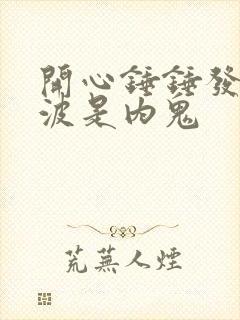 開心錘錘發
波是內鬼
荒蕪人煙